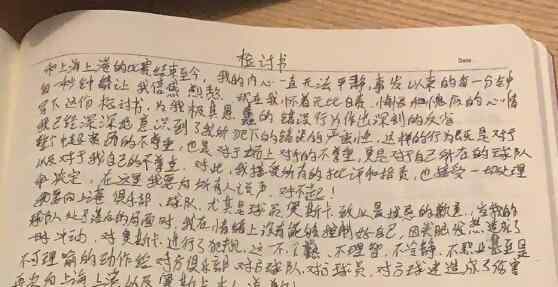 检讨书
Date
和上海上港的比赛结束至今，我的内心一直无法平静，事发以来的每一分钟
每一秒钟都让我倍感煎熬。现在我怀着无比自责、悔恨和愧疚的心情
写下这份检讨书，为我极其愚蠢的错误行为作出深刻的反省
我已经深深地意识到了我所犯下的错误的严重性，这样的行为既是对于
整个中超联赛的不尊重，也是对于场上对手的不尊重，更是对于自己所在的球队
以及对于我自己的不尊重。对此，我接受所有的批评和指责，也接受一切处理
和决定，在这里我要向所有人说声，对不起！
我要向上海俱乐部、球队、尤其是球员奥斯卡致以最诚恳的歉意，当我的
球队处于落后的局面时，我在情绪上没有能够控制好自己，因此脑
一时冲动，对奥斯卡进行了犯规，这一不
不可理喻的动作给对方俱乐部对方球队、对方球员、对方球迷造成了伤害
向上海上港的